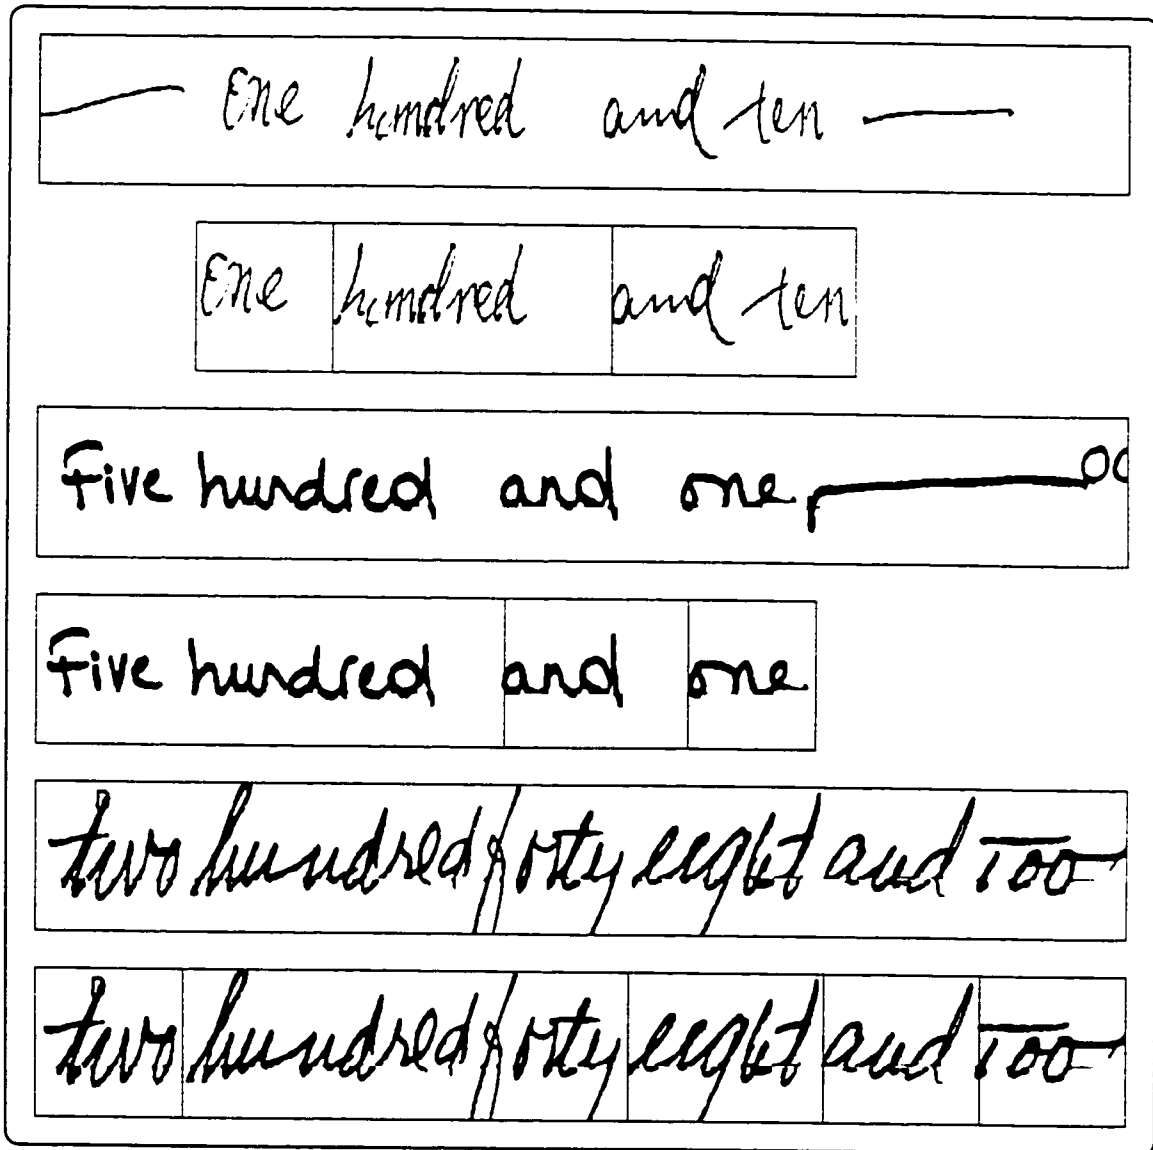 One hundred and ten
One hundred and ten
Five hundred and one 00
Five hundred and one
two hundred forty eight and 100
two hundred forty eight and 100